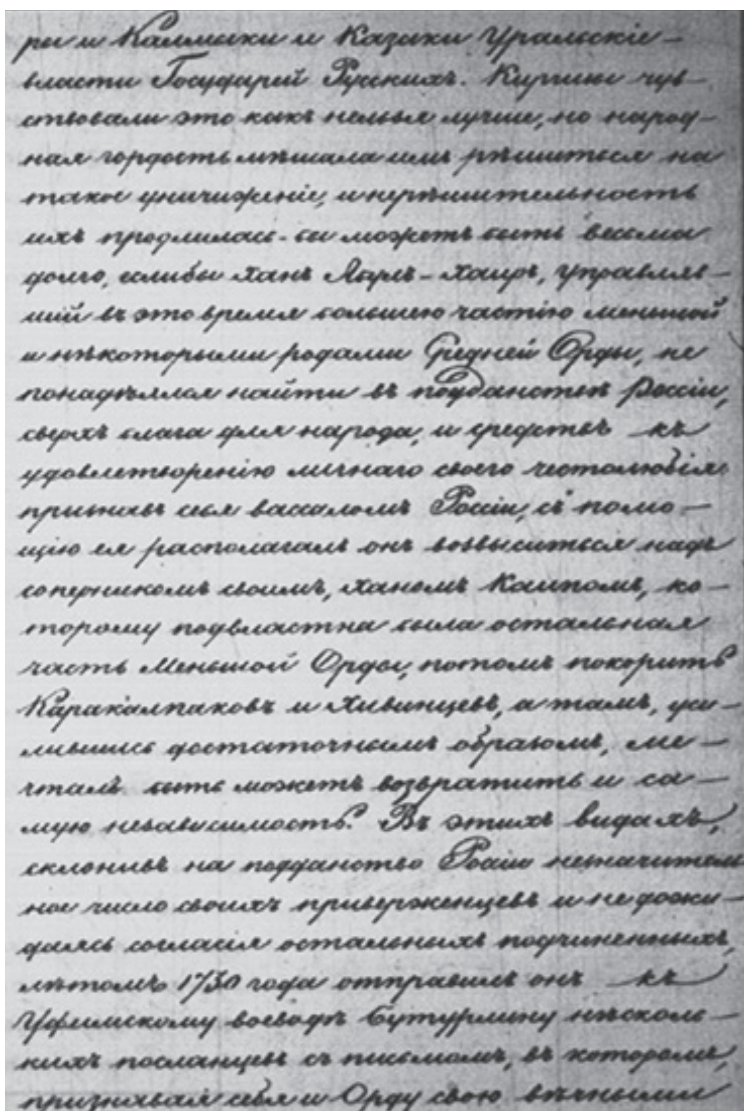 ры и Калмыки и Казаки Уральскіе –
власти Государей Русскихъ. Киргизы чув-
ствовали это какъ нельзя лучше, но народ-
ная гордость мѣшала имъ рѣшиться на
такое уничиженіе, и нерѣшительность
ихъ продлилась-бы можетъ быть весьма
долго, еслибы Ханъ Абулъ-Хаиръ, управляв-
шій въ это время большею частію меньшой
и нѣкоторыми родами Средней Орды, не
понадѣялся найти въ подданствѣ Россіи,
сверхъ блага для народа, и средствъ къ
удовлетворенію личнаго своего честолюбія
признавъ себя вассаломъ Россіи, съ помо-
щію ея располагалъ онъ возвыситься надъ
соперникомъ своимъ, ханомъ Каипомъ, ко-
торому подвластна была остальная
часть Меньшой Орды, потомъ покорить
Каракалпаковъ и Хивинцевъ, а тамъ, уси-
лившись достаточнымъ образомъ, ме-
чталъ быть можетъ возвратить и са-
мую независимость. Въ этихъ видахъ,
склонивъ на подданство Россіи незначитель
ное число своихъ приверженцевъ и не дожи-
даясь согласія остальныхъ подчиненныхъ,
лѣтомъ 1730 года отправилъ онъ къ
Уфимскому воеводѣ Бутурлину нѣсколь-
кихъ посланцевъ съ письмомъ, въ которомъ,
признавая себя и Орду свою вѣчными